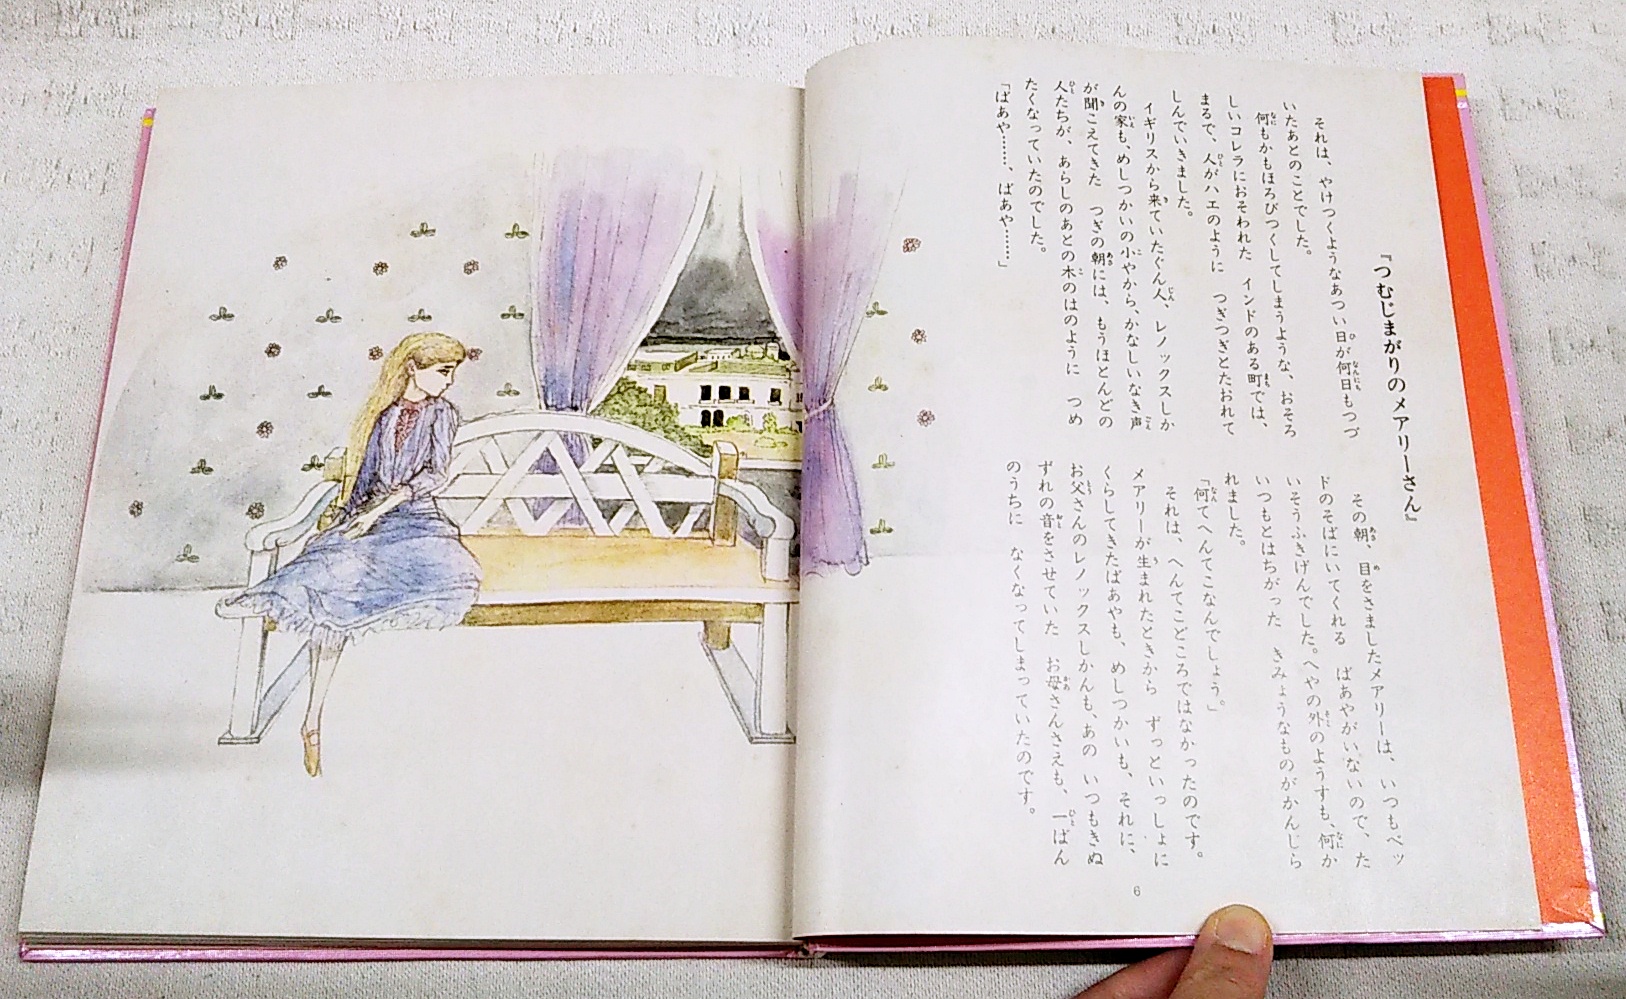 『つむじまがりのメアリーさん』
それは、やけつくようなあつい日が何日もつづ
いたあとのことでした。
何もかもほろびつくしてしまうような、おそろ
しいコレラにおそわれた　インドのある町では、
まるで、人がハエのように　つぎつぎとたおれて
しんでいきました。
イギリスから来ていたぐん人、レノックスしか
んの家も、めしつかいの小やから、かなしいなき声
が聞こえてきた　つぎの朝には、もうほとんどの
人たちが、あらしのあとの木のはのように　つめ
たくなっていたのでした。
「ばあや……、ばあや……」
その朝、目をさましたメアリーは、いつもベッ
ドのそばにいてくれる　ばあやがいないので、た
いそうふきげんでした。へやの外のようすも、何か
いつもとはちがった　きみょうなものがかんじら
れました。
「何てへんてこなんでしょう。」
それは、へんてこどころではなかったのです。
メアリーが生まれたときから　ずっといっしょに
くらしてきたばあやも、めしつかいも、それに、
お父さんのレノックスしかんも、あの　いつもきぬ
ずれの音をさせていた　お母さんさえも、一ばん
のうちに　なくなってしまっていたのです。
6